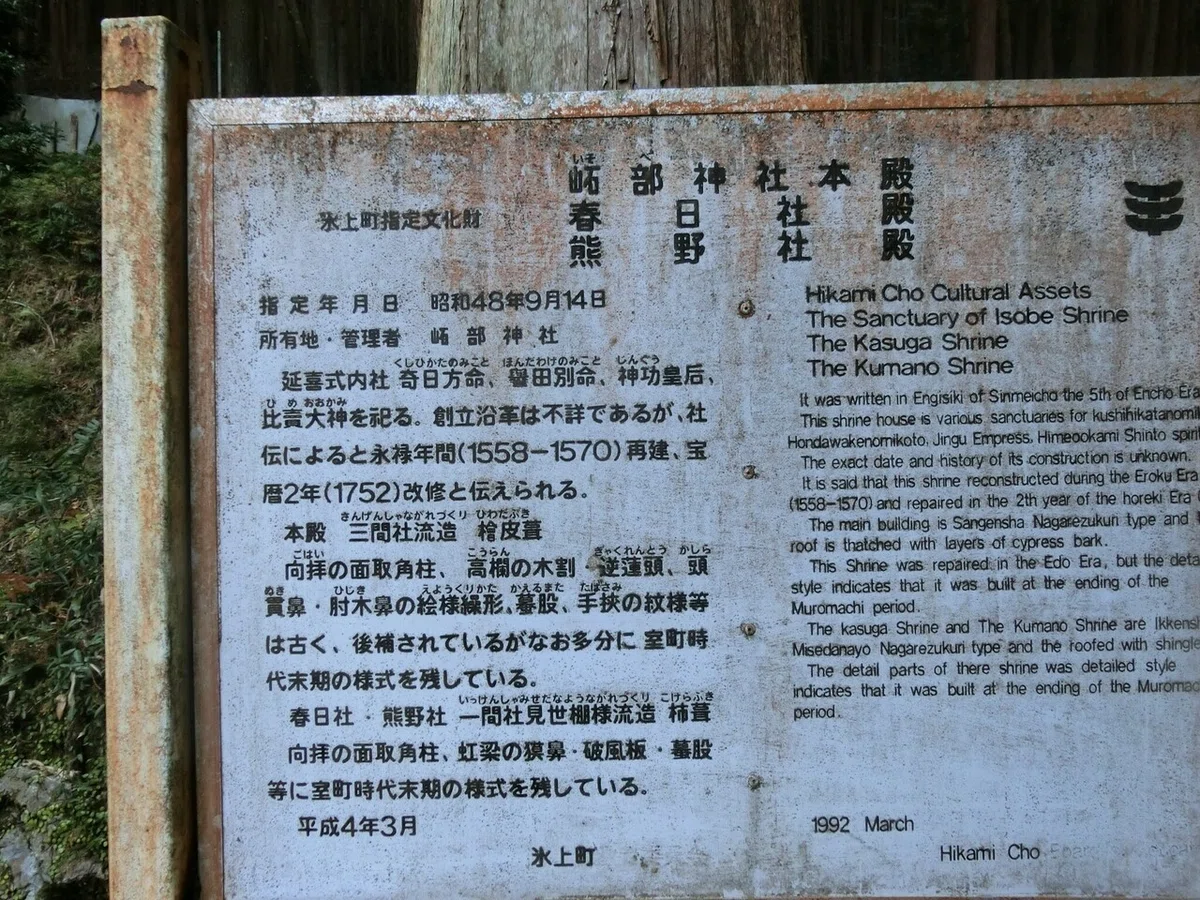 氷上町指定文化財
いそ べ
岵部神社本殿
春日社殿
熊野社殿
指定年月日 昭和48年9月14日
所有地・管理者 岵部神社
くしひかたのみこと ほんだわけのみこと じんぐう
延喜式内社 奇日方命、譽田別命、神功皇后、
ひめおおかみ
比賣大神を祀る。創立沿革は不詳であるが、社
伝によると永禄年間(1558−1570)再建、宝
暦2年(1752)改修と伝えられる。
さんげんしゃながれづくり ひわだぶき
本殿 三間社流造 檜皮葺
ごはい こうらん ぎゃくれんとう かしら
向拝の面取角柱、高欄の木割・逆蓮頭、頭
ぬき ひじき えようくりかた かえるまた たばさみ
貫鼻・肘木鼻の絵様繰形、蟇股、手挾の紋様等
は古く、後補されているがなお多分に室町時
代末期の様式を残している。
いっけんしゃみせだなようながれづくり こけらぶき
春日社・熊野社 一間社見世棚様流造 柿葺
向拝の面取角柱、虹梁の獏鼻・破風板・蟇股
等に室町時代末期の様式を残している。
平成4年3月
氷上町
Hikami Cho Cultural Assets
The Sanctuary of Isobe Shrine
The Kasuga Shrine
The Kumano Shrine
It was written in Engisiki of Sinmeicho the 5th of Encho Era
This shrine house is various sanctuaries for kushihikatanomik
Hondawakenomikoto, Jingu Empress, Himeookami Shinto spirit
The exact date and history of its construction is unknown.
It is said that this shrine reconstructed during the Eroku Era
(1558-1570) and repaired in the 2th year of the horeki Era
The main building is Sangensha Nagarezukuri type and
roof is thatched with layers of cypress bark.
This Shrine was repaired in the Edo Era, but the deta
style indicates that it was built at the ending of the
Muromachi period.
The kasuga Shrine and The Kumano Shrine are Ikkensh
Misedanayo Nagarezukuri type and the roofed with shingle
The detail parts of there shrine was detailed style
indicates that it was built at the ending of the Muromac
period.
1992 March
Hikami Cho